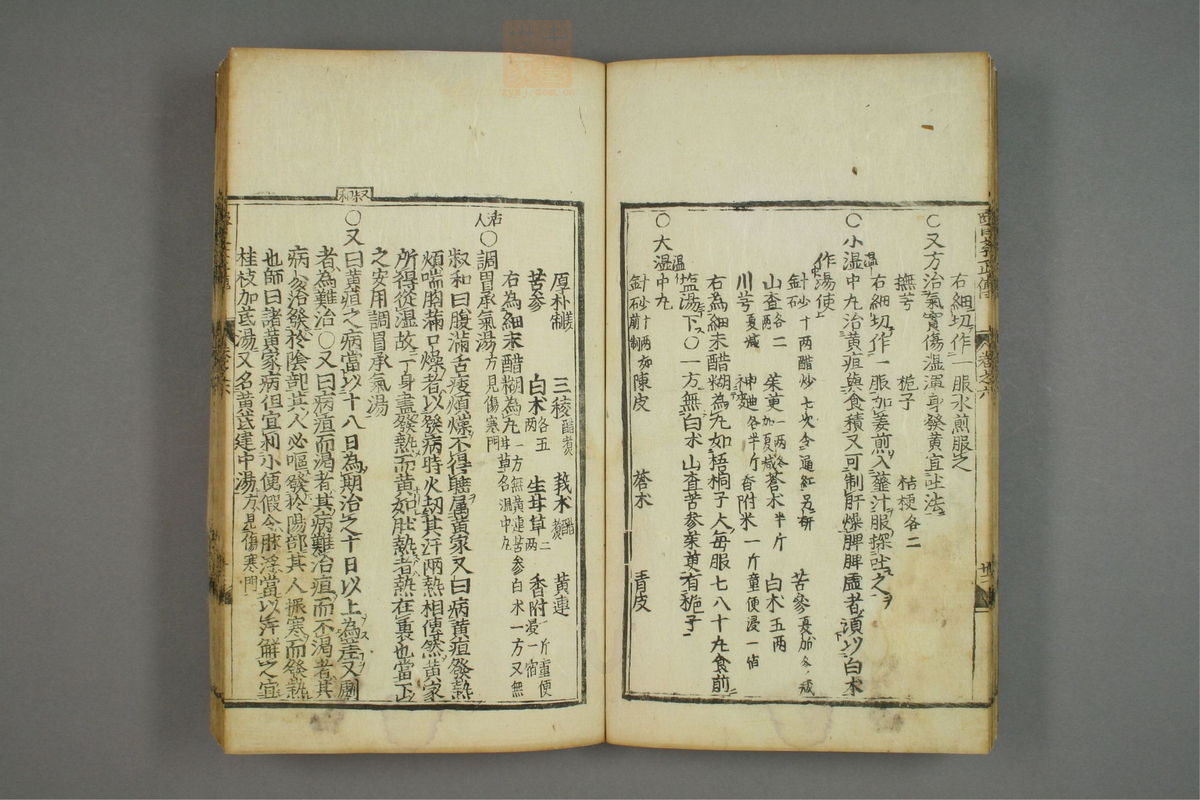 右細切作一服水煎服之
○又方治氣實傷濕渾身發黃宜吐法
撫芎 梔子 桔梗各二
右細切作一服加姜煎入虀汁服探吐之
○小溫中丸治黃疸與食積又可制肝燥脾脾虛者須以白朮
作湯使
針砂十兩醋炒七次令通紅另研 苦參夏加冬減
山査各二兩 茱萸一兩冬加夏減 蒼朮半斤 白朮五兩
川芎夏減 神麯各半斤 香附米一斤童便浸一宿
右為細末醋糊為丸如梧桐子大每服七八十丸食前
塩湯下○一方無白朮山査苦參茱萸有梔子
○大溫中丸
針砂十兩制如前 陳皮 蒼朮 青皮
厚朴姜制 三稜醋煮 莪朮醋煮 黃連
苦參 白朮各五兩 生甘草二兩 香附一斤童便浸一宿
右為細末醋糊為丸一方無黃連苦參白朮一方又無甘草名溫中丸
古人
○調胃承氣湯方見傷寒門
叔和曰腹滿舌痿煩燥不得睡属黃家又曰病黃疸發熱
煩喘胸滿口燥者以發病時火劫其汗兩熱相使然黃家
所得從湿故一身盡發熱而黃如肚熱者熱在裏也當下
之安用調胃承氣湯
叔和
○又曰黃疸之病當以十八日為期治之十日以上為差又劇
者為難治○又曰病疸而渴者其病難治疸而不渴者其
病可治發於陰部其人必嘔發於陽部其人振寒而發熱
也師曰諸黃家病但宜利小便假令脉浮當以汗解之宜
桂枝加芪湯又名黃芪建中湯方見傷寒門